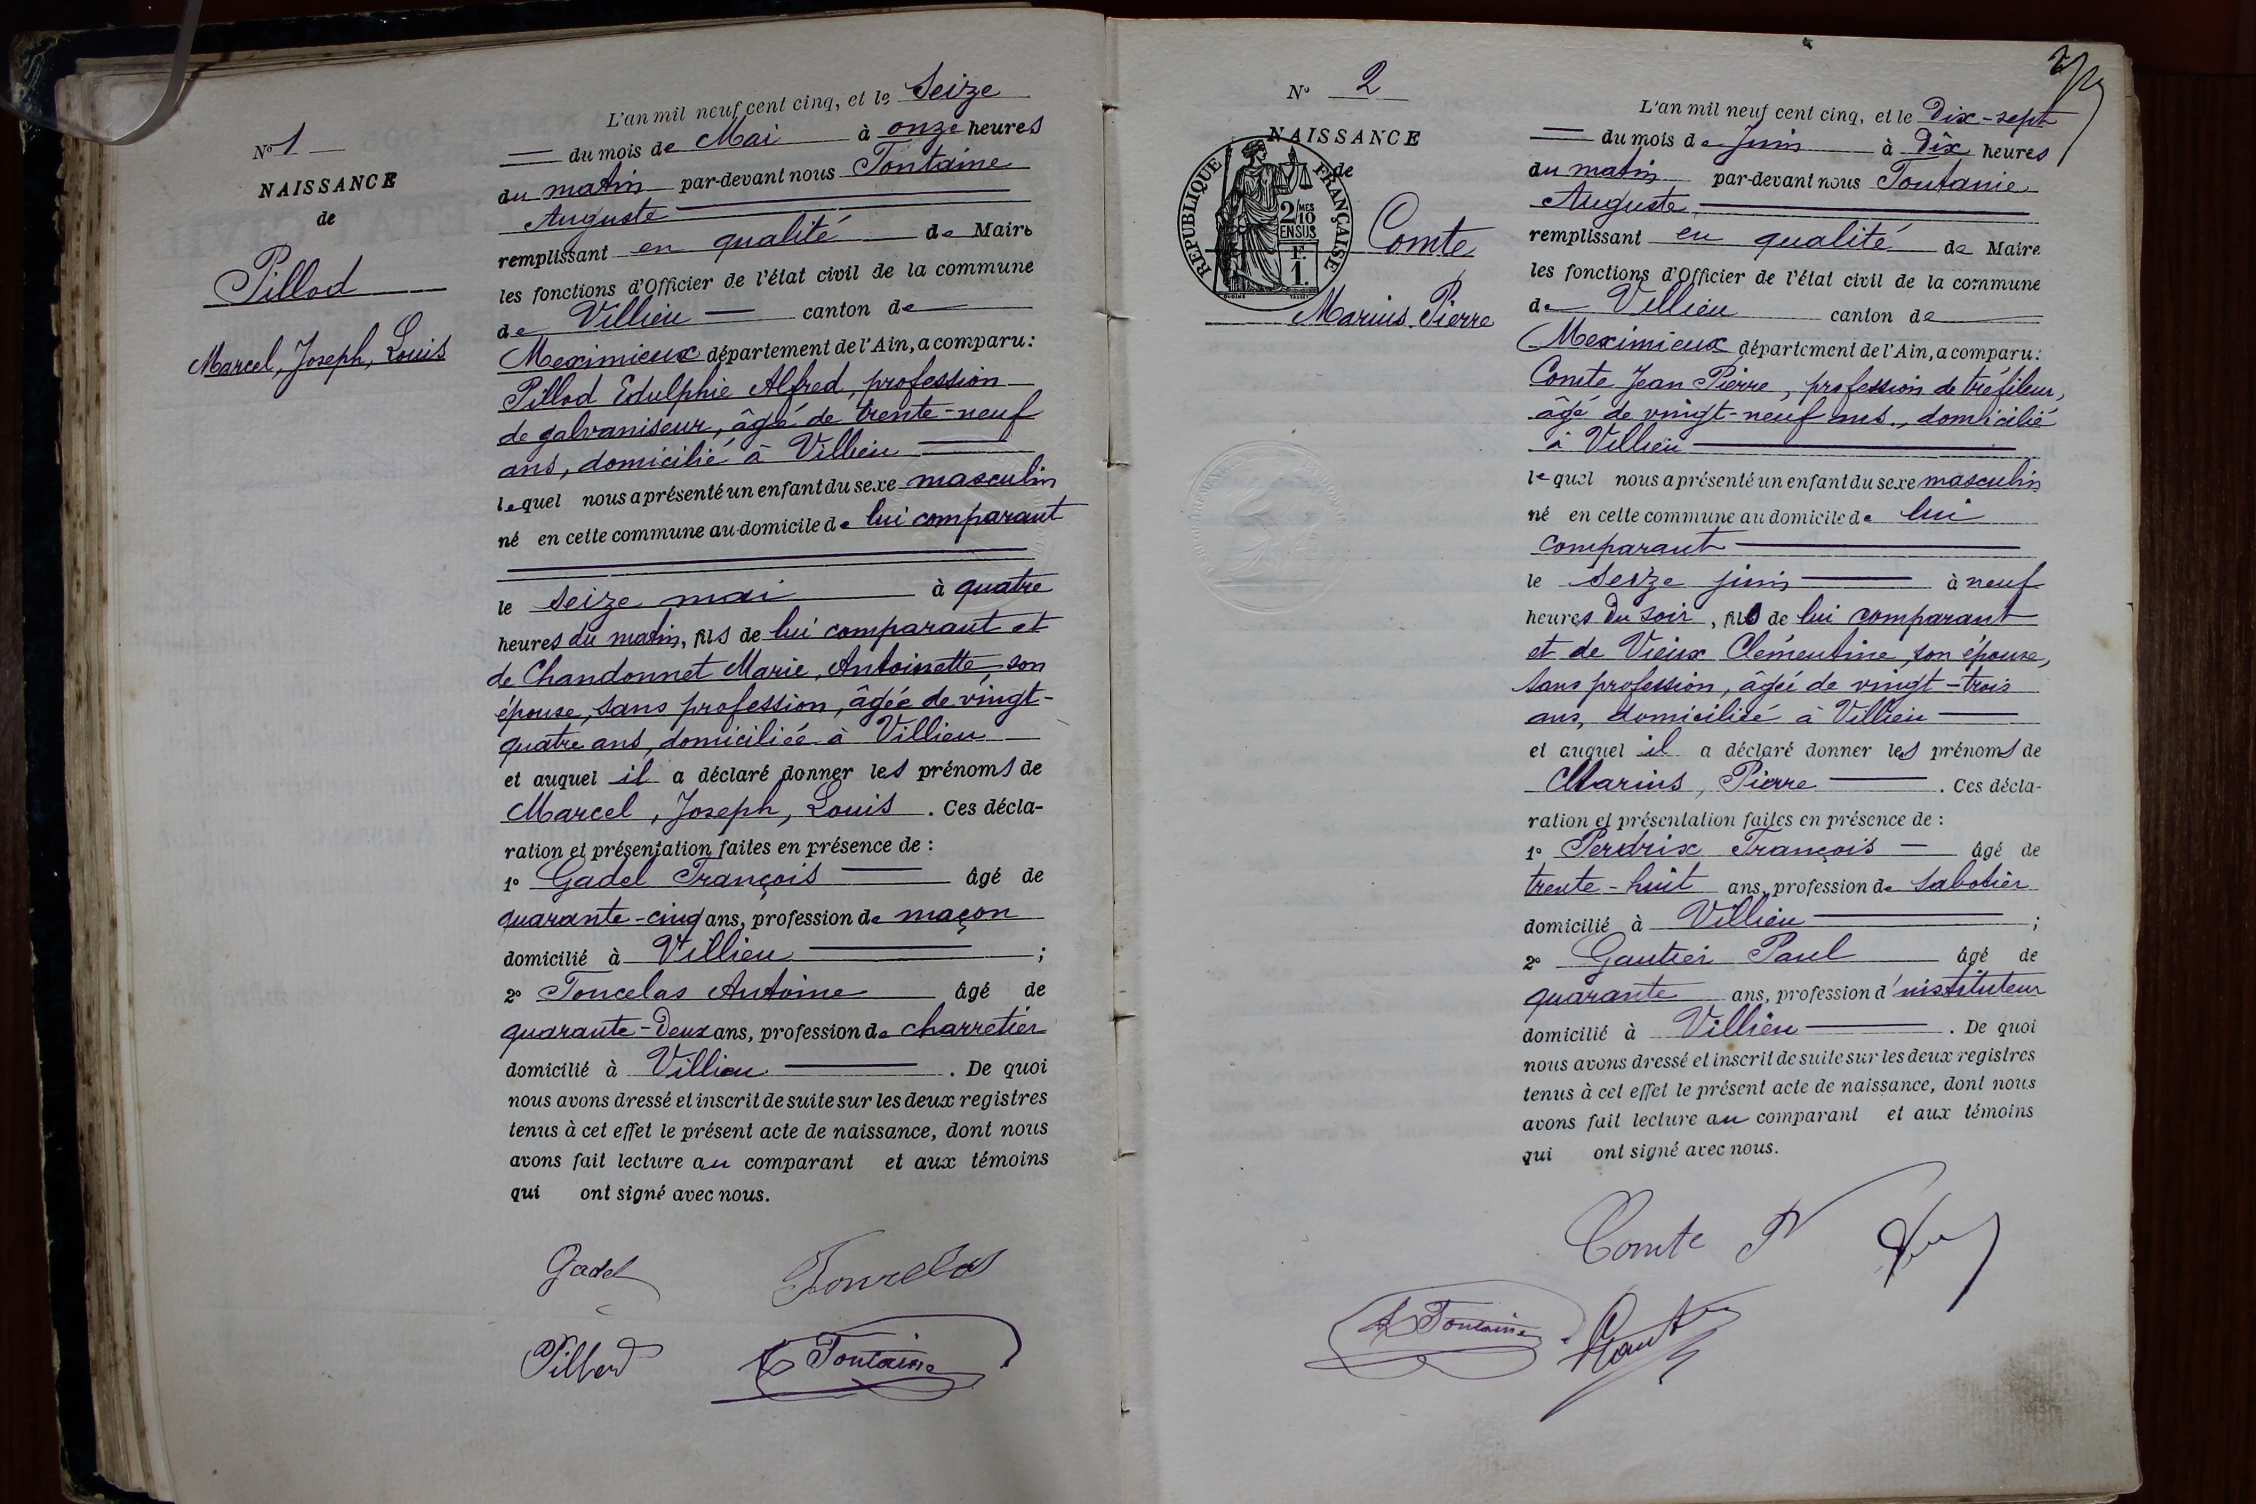 N° 1
NAISSANCE
de
Pillod
Marcel, Joseph, Louis
L'an mil neuf cent cinq, et le Seize
du mois de Mai à onze heures
du matin par-devant nous Fontaine
Auguste
remplissant en qualité de Maire
les fonctions d'Officier de l'état civil de la commune
de Villieu canton de
Meximieux département de l'Ain, a comparu:
Pillod Edulphie Alfred, profession
de galvaniseur, âgé de trente-neuf
ans, domicilié à Villieu
lequel nous a présenté un enfant du sexe masculin
né en cette commune au domicile de lui comparant
le seize mai à quatre
heures du matin, fils de lui comparant et
de Chandonnet Marie, Antoinette, son
épouse, sans profession, âgée de vingt-
quatre ans, domiciliée à Villieu
et auquel il a déclaré donner les prénoms de
Marcel, Joseph, Louis. Ces décla-
ration et présentation faites en présence de :
1° Gadel François âgé de
quarante-cinq ans, profession de maçon
domicilié à Villieu ;
2° Foucelas Antoine âgé de
quarante-Deux ans, profession de charretier
domicilié à Villieu. De quoi
nous avons dressé et inscrit de suite sur les deux registres
tenus à cet effet le présent acte de naissance, dont nous
avons fait lecture au comparant et aux témoins
qui ont signé avec nous.
Gadel
Pillod A Fontaine
N° 2
NAISSANCE
de
REPUBLIQUE FRANÇAISE
2/10 MES
EN SUS
1 F.
Comte
Marius Pierre
L'an mil neuf cent cinq, et le Dix-sept
du mois de Juin à Dix heures
du matin par-devant nous Fontanie
Auguste
remplissant en qualité de Maire
les fonctions d'Officier de l'état civil de la commune
de Villieu canton de
Meximieux département de l'Ain, a comparu:
Comte Jean Pierre, profession de tréfileur,
âgé de vingt-neuf ans, domicilié
à Villieu
lequel nous a présenté un enfant du sexe masculin
né en cette commune au domicile de lui
comparant
le seize juin à neuf
heures du soir, fils de lui comparant
et de Vieux Clémentine, son épouse,
sans profession, âgée de vingt-trois
ans, domiciliée à Villieu
et auquel il a déclaré donner les prénoms de
Marius, Pierre. Ces décla-
ration et présentation faites en présence de :
1° Perdrix François âgé de
trente-huit ans, profession de sabotier
domicilié à Villieu ;
2° Gautier Paul âgé de
quarante ans, profession d'instituteur
domicilié à Villieu. De quoi
nous avons dressé et inscrit de suite sur les deux registres
tenus à cet effet le présent acte de naissance, dont nous
avons fait lecture au comparant et aux témoins
qui ont signé avec nous.
Comte P
A Fontaine